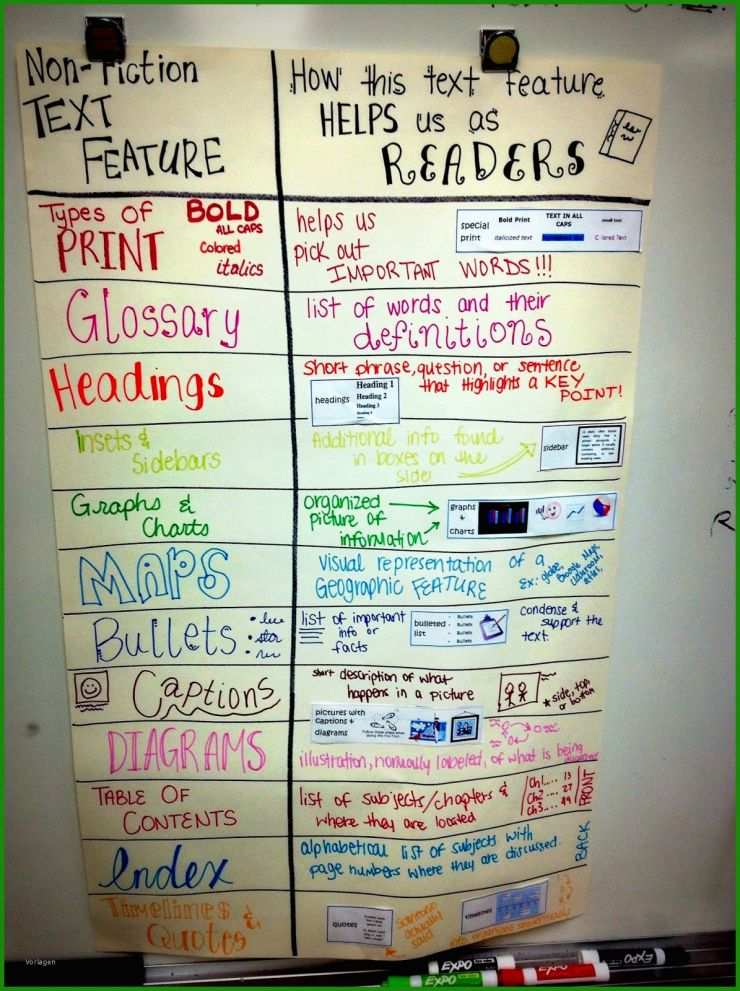 Non-Fiction
TEXT
FEATURE
How this text feature
HELPS us as
READERS
Types of
PRINT
BOLD
ALL CAPS
Colored
italics
helps us
pick out
IMPORTANT WORDS!!!
special
print
Bold Print
italicized text
TEXT IN ALL
CAPS
small text
Colored Text
Glossary
list of words and their
definitions
Headings
Short phrase, question, or sentence
that Highlights a KEY
POINT!
headings
Heading 1
Heading 2
Heading 3
Insets &
Sidebars
Additional info found
in boxes on the
side
sidebar
Graphs &
Charts
organized
picture of
information
graphs
+
charts
MAPS
visual representation of a
Geographic FEATURE
Ex: globe,
Google Maps
Bullets
list of important
info or
facts
bulleted
list
Bullets
Bullets
Bullets
Bullets
condense &
support the
text.
Captions
short description of what
happens in a picture
* side, top,
or bottom
pictures with
captions +
diagrams
DIAGRAMS
illustration, normally labeled, of what is being
TABLE OF
CONTENTS
list of subjects/chapters &
where they are located
Ch1.... 13
Ch2.... 27
Ch3....
FRONT
Index
alphabetical list of subjects with
page numbers where they are discussed.
BACK
Timelines &
Quotes
quotes
someone
actually
said
timelines
EXPO
EXPO
EXPO
EXPO
Vorlagen